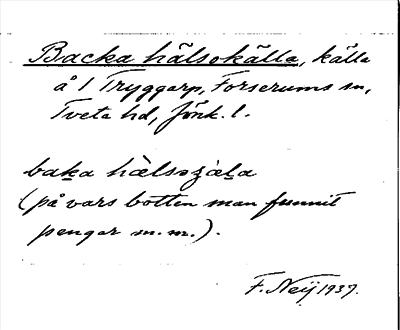 Backa hälsokälla, källa
å 1 Tryggarp, Forserums sn,
Tveta hd, Jönk. l.
baka hàlsoʒàla
(på vars botten man funnit
pengar m.m.).
F. Neij 1937.